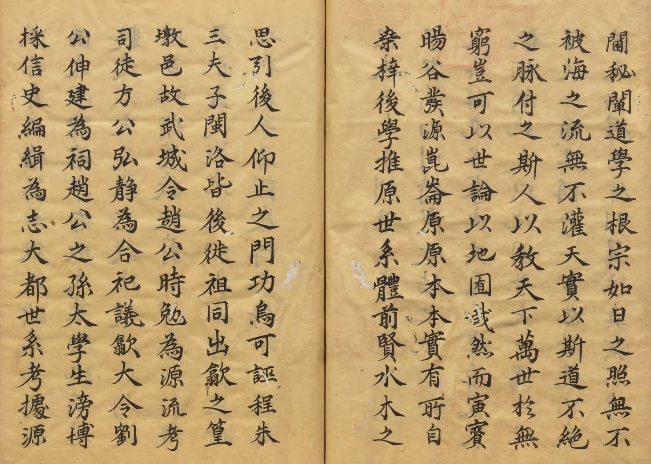 閫秘闡道學之根宗如日之照無不
被海之流無不灌天實以斯道不絕
之脉付之斯人以教天下萬世於無
窮豈可以世論以地囿哉然而寅賓
暘谷發源崑崙原原本本實有所自
桒梓後學推原世系體前賢水木之
思引後人仰止之門功烏可誣程朱
三夫子閩洛皆後徙祖同出歙之篁
墩邑故武城令趙公時勉為源流考
司徒方公弘静為合祀議歙大令劉
公伸建為祠趙公之孫太學生滂槫
採信史編緝為志大都世系考據源